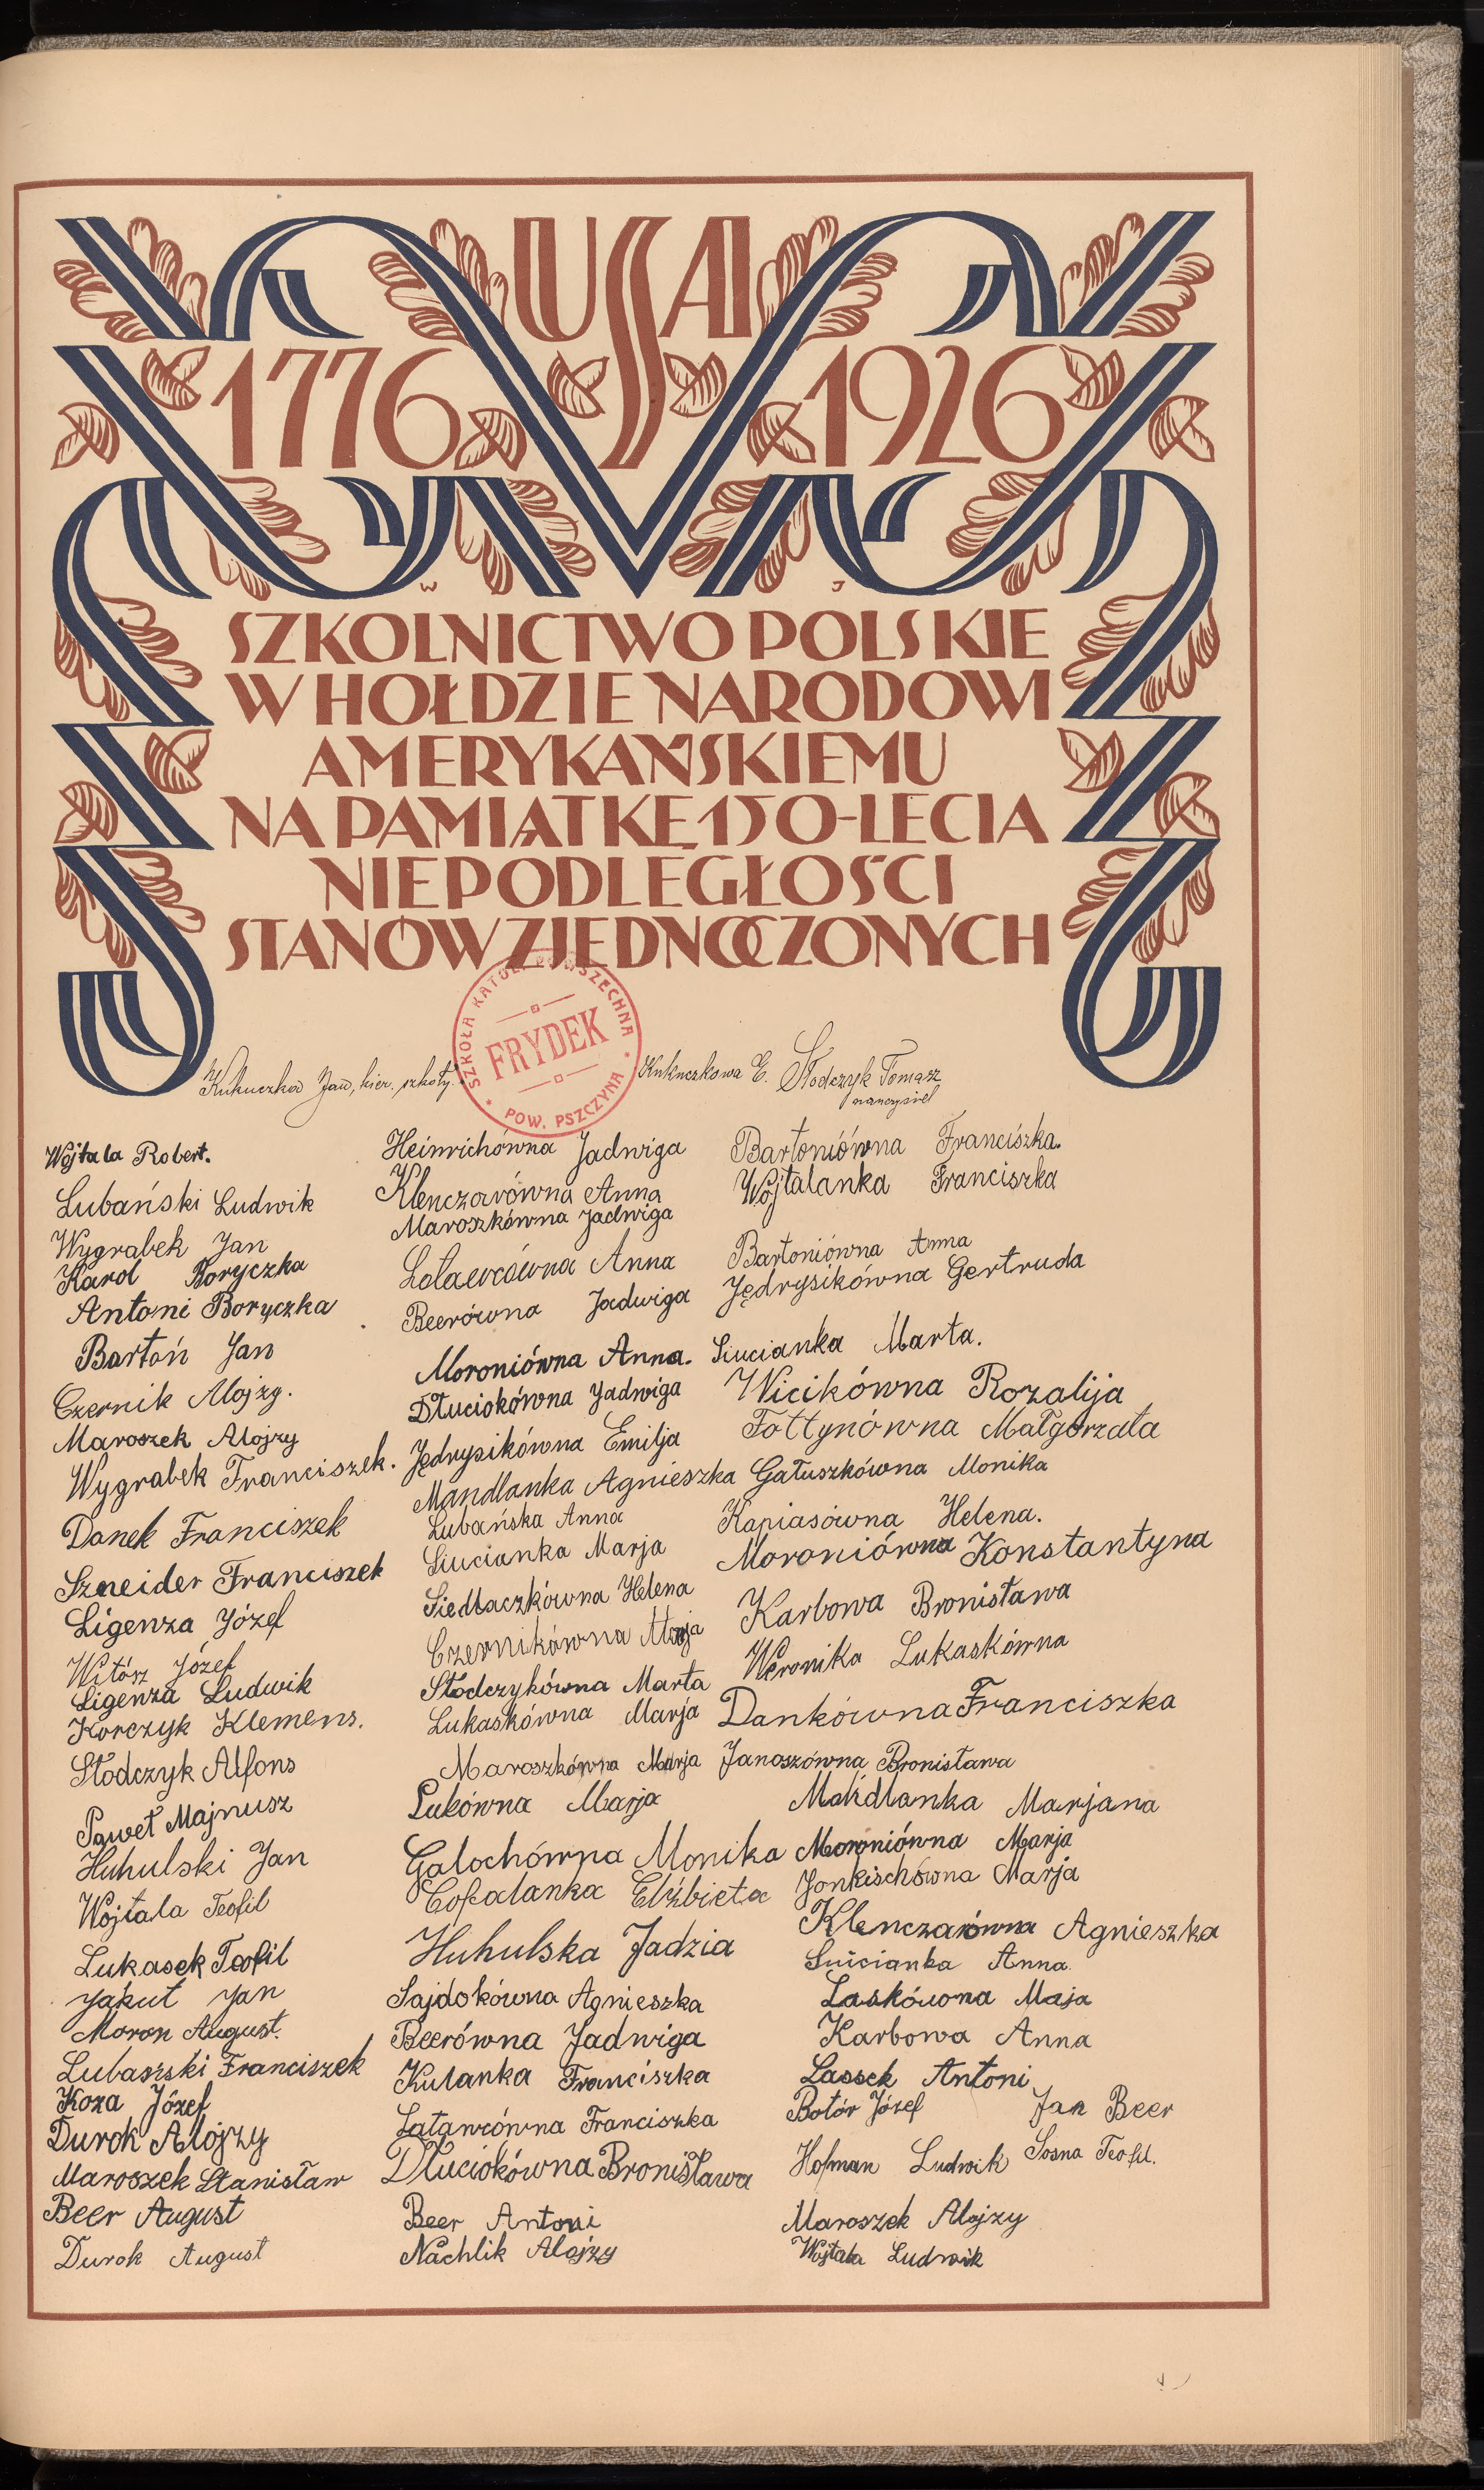 USA
1776 1926
W J
SZKOLNICTWO POLSKIE
W HOŁDZIE NARODOWI
AMERYKAŃSKIEMU
NA PAMIĄTKĘ 150-LECIA
NIEPODLEGŁOŚCI
STANÓW ZJEDNOCZONYCH
SZKOŁA KATOL. POWSZECHNA
FRYDEK
POW. PSZCZYNA
Kukuczka Jan, kier. szkoły.
Kukuczkowa E. Słodczyk Tomasz
nauczyciel
Wojtala Robert.
Lubański Ludwik
Wygrabek Jan
Karol Boryczka
Antoni Boryczka
Bartoń Jan
Czernik Alojzy.
Maroszek Alojzy
Wygrabek Franciszek.
Danek Franciszek
Szneider Franciszek
Ligenza Józef
Witósz Józef
Ligenza Ludwik
Korczyk Klemens.
Słodczyk Alfons
Paweł Majnusz
Huhulski Jan
Wojtala Teofil
Lukasek Teofil
Jakut Jan
Moron August.
Lubański Franciszek
Koza Józef
Durok Alojzy
Maroszek Stanisław
Beer August
Durok August
Heinrichówna Jadwiga
Klenczarówna Anna
Maroszkówna Jadwiga
Latawcówna Anna
Beerówna Jadwiga
Moroniówna Anna.
Dłuciokówna Jadwiga
Jędrysikówna Emilja
Mandlanka Agnieszka
Lubańska Anna
Siucianka Marja
Siedlaczkówna Helena
Czernikówna Marja
Słodczykówna Marta
Lukaskówna Marja
Maroszkówna Marja
Lukówna Marja
Galochówna Monika
Cofalanka Elżbieta
Huhulska Jadzia
Sajdokówna Agnieszka
Beerówna Jadwiga
Kulanka Franciszka
Latawcówna Franciszka
Dłuciokówna Bronisława
Beer Antoni
Nachlik Alojzy
Bartoniówna Franciszka.
Wojtalanka Franciszka
Bartoniówna Anna
Jędrysikówna Gertruda
Siucianka Marta.
Wicikówna Rozalija
Fołtynówna Małgorzata
Gałuszkówna Monika
Kapiasówna Helena.
Moroniówna Konstantyna
Karbowa Bronisława
Weronika Lukaskówna
Dankówna Franciszka
Janoszówna Bronisława
Mandlanka Marjana
Moroniówna Marja
Jonkischówna Marja
Klenczarówna Agnieszka
Siucianka Anna.
Laskówona Maja
Karbowa Anna
Lassek Antoni
Botór Józef Jan Beer
Hofman Ludwik Sosna Teofil.
Maroszek Alojzy
Wojtala Ludwik